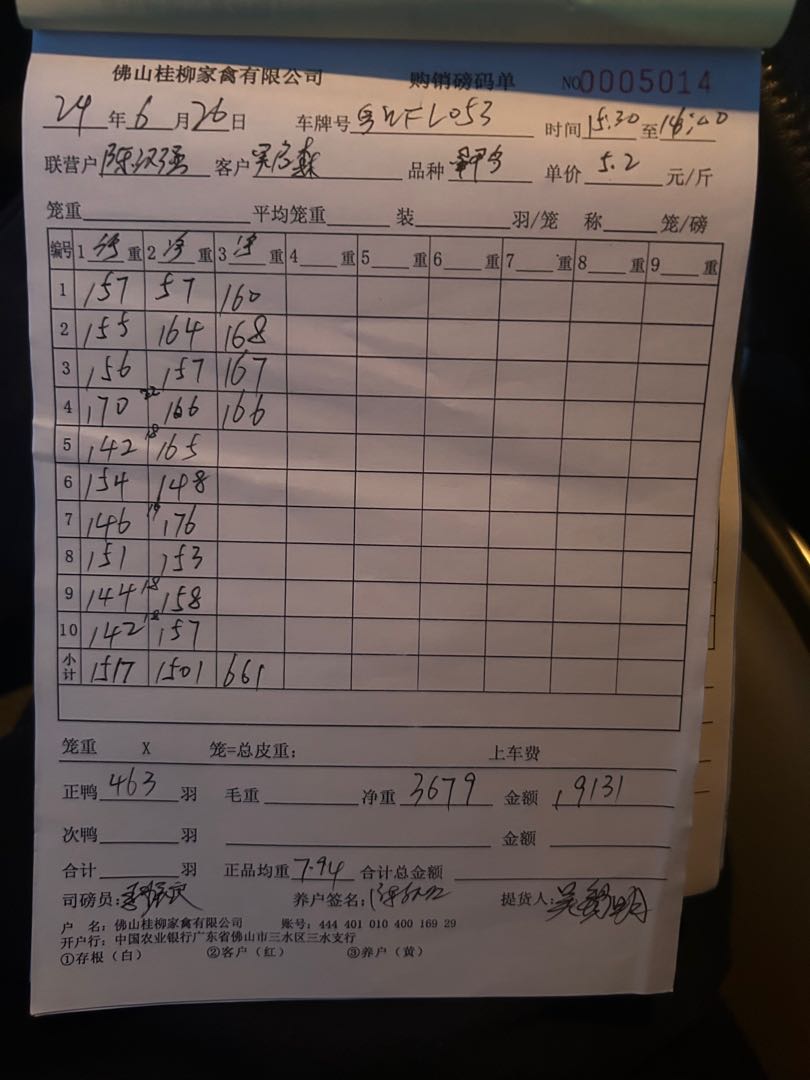 佛山桂柳家禽有限公司 购销磅码单 NO0005014
24年6月26日 车牌号 粤WFL053 时间15:30至16:00
联营户 陈汉强 客户 品种 单价 5.2 元/斤
笼重 平均笼重 装 羽/笼 称 笼/磅
编号 1净重 2净重 3净重 4 重 5 重 6 重 7 重 8 重 9 重
1 157 57 160
2 155 164 168
3 156 157 167
4 170 22 166 166
5 142 18 165
6 154 148
7 146 19 176
8 151 153
9 144 18 158
10 142 18 157
小计 1517 1501 661
笼重 X 笼=总皮重: 上车费
正鸭 463 羽 毛重 净重 3679 金额 19131
次鸭 羽 金额
合计 羽 正品均重 7.94 合计总金额
司磅员: 养户签名: 提货人:
户 名: 佛山桂柳家禽有限公司 账号: 444 401 010 400 169 29
开户行: 中国农业银行广东省佛山市三水区三水支行
①存根(白) ②客户(红) ③养户(黄)